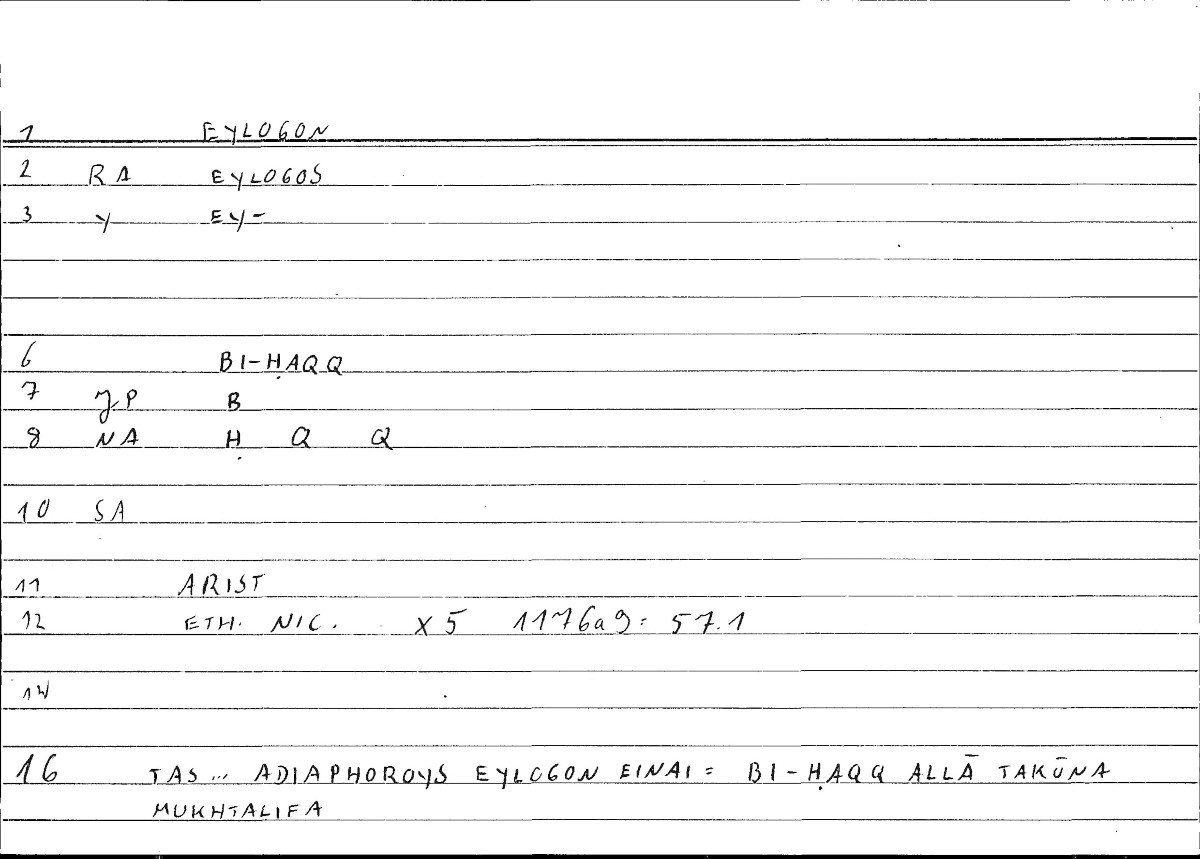 1 EYLOGON
2 RA EYLOGOS
3 Y EY-
6 BI-ḤAQQ
7 JP B
8 NA Ḥ Q Q
10 SA
11 ARIST
12 ETH. NIC. X 5 1176a9: 57.1
14
16 TAS ... ADIAPHOROYS EYLOGON EINAI = BI-ḤAQQ ALLĀ TAKŪNA
MUKHTALIFA